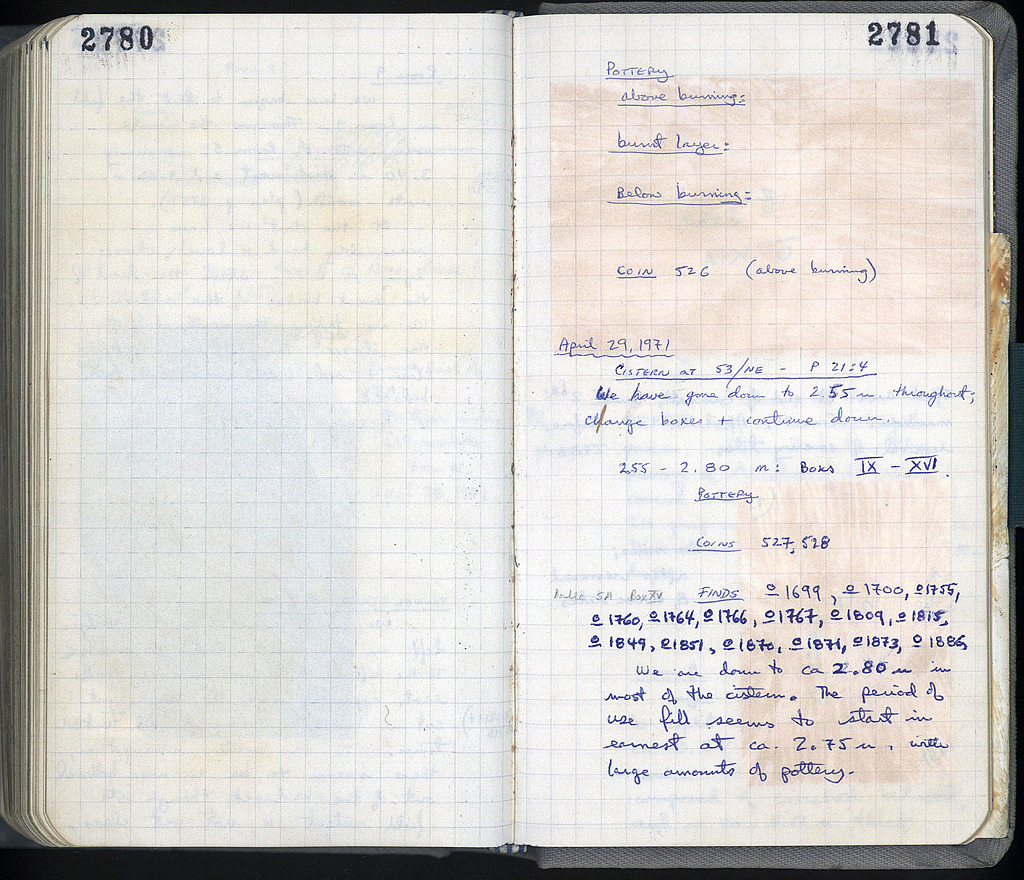 2780
2781
POTTERY
above burning:
burnt layer:
Below burning:
COIN 526 (above burning)
April 29, 1971
CISTERN AT 53/NE - P 21:4
We have gone down to 2.55 m throughout;
change boxes + continue down.
2.55 - 2.80 m: Boxs IX - XVI.
POTTERY
COINS 527, 528
Box XV FINDS o 1699, o 1700, o 1755,
o 1760, o 1764, o 1766, o 1767, o 1809, o 1815,
o 1849, o 1851, o 1870, o 1871, o 1873, o 1886,
We are down to ca 2.80 m in
most of the cistern. The period of
use fill seems to start in
earnest at ca. 2.75 m, with
large amounts of pottery.